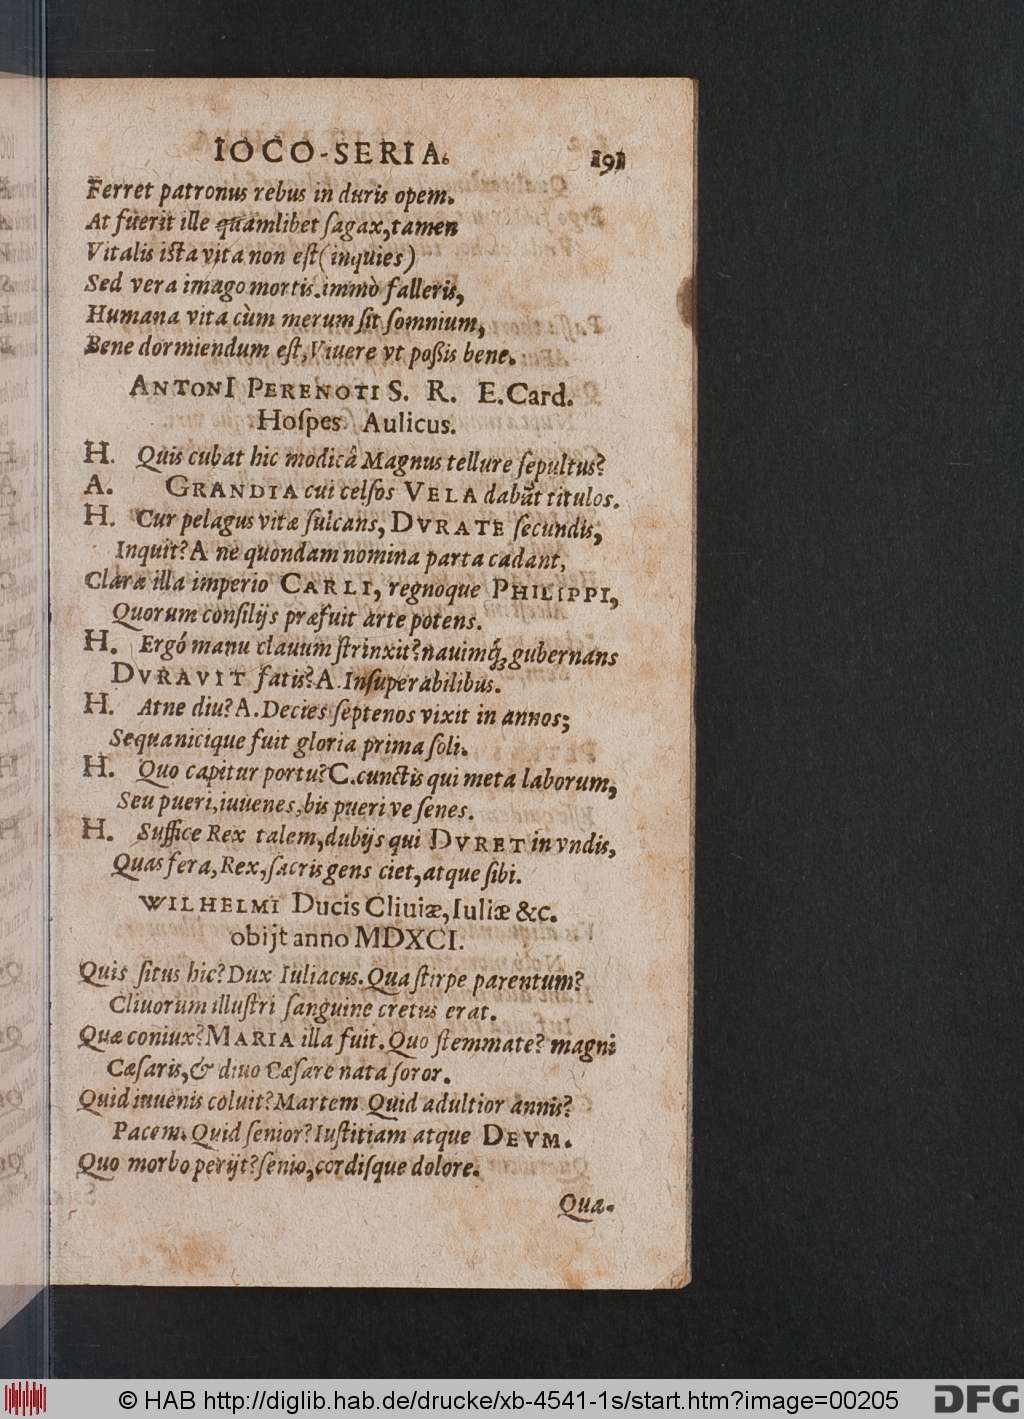 IOCO-SERIA. 191
Ferret patronus rebus in duris opem.
At fuerit ille quamlibet ſagax, tamen
Vitalis iſta vita non eſt (inquies)
Sed vera imago mortis. immò falleris,
Humana vita cùm merum ſit ſomnium,
Bene dormiendum eſt, Viuere vt poßis bene.
ANTONI PERENOTI S. R. E. Card.
Hoſpes Aulicus.
H. Quis cubat hic modicâ Magnus tellure ſepultus?
A. GRANDIA cui celſos VELA dabãt titulos.
H. Cur pelagus vitæ ſulcans, DVRATE ſecundis,
Inquit? A ne quondam nomina parta cadant,
Claræ illa imperio CARLI, regnoque PHILIPPI,
Quorum conſilijs præfuit arte potens.
H. Ergó manu clauum ſtrinxit? nauimq́; gubernans
DVRAVIT fatis? A. Inſuperabilibus.
H. Atne diu? A. Decies ſeptenos vixit in annos;
Sequanicique fuit gloria prima ſoli.
H. Quo capitur portu? C. cunctis qui meta laborum,
Seu pueri, iuuenes, bis pueri ve ſenes.
H. Suffice Rex talem, dubijs qui DVRET in vndis,
Quas fera, Rex, ſacris gens ciet, atque ſibi.
WILHELMI Ducis Cliuiæ, Iuliæ &c.
obijt anno MDXCI.
Quis ſitus hic? Dux Iuliacus. Qua ſtirpe parentum?
Cliuorum illuſtri ſanguine cretus erat.
Quæ coniux? MARIA illa fuit. Quo ſtemmate? magni
Cæſaris, & diuo Cæſare nata ſoror.
Quid iuuenis coluit? Martem Quid adultior annis?
Pacem. Quid ſenior? Iuſtitiam atque DEVM.
Quo morbo perijt? ſenio, cordiſque dolore.
Quæ.
© HAB http://diglib.hab.de/drucke/xb-4541-1s/start.htm?image=00205 DFG